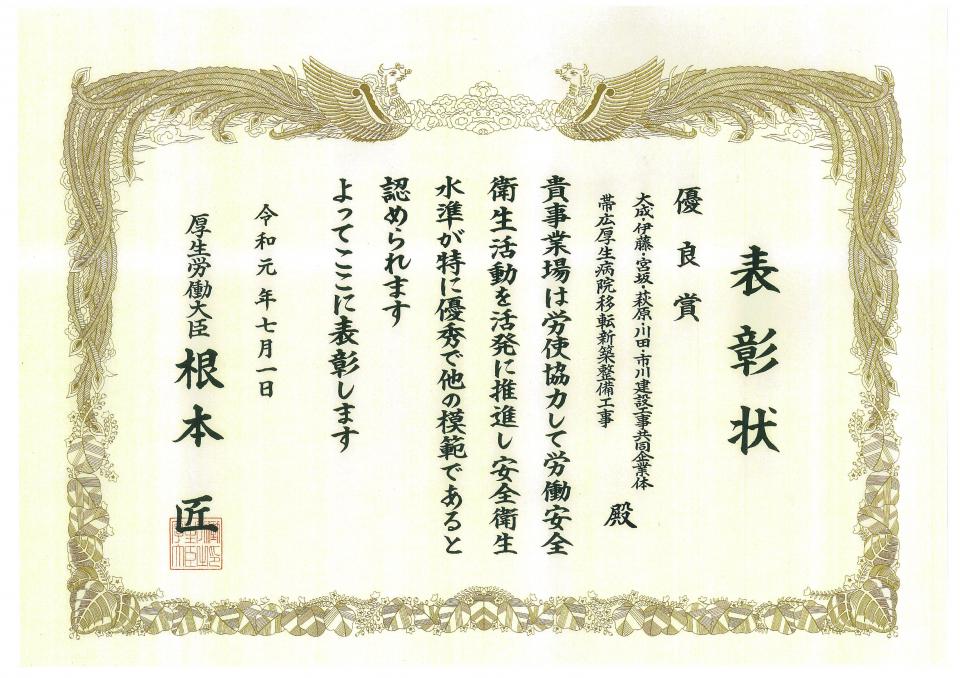 表彰状
優良賞
大成・伊藤・宮坂・萩原・川田・市川建設工事共同企業体
帯広厚生病院移転新築整備工事
殿
貴事業場は労使協力して労働安全
衛生活動を活発に推進し安全衛生
水準が特に優秀で他の模範であると
認められます
よってここに表彰します
令和元年七月一日
厚生労働大臣 根本 匠